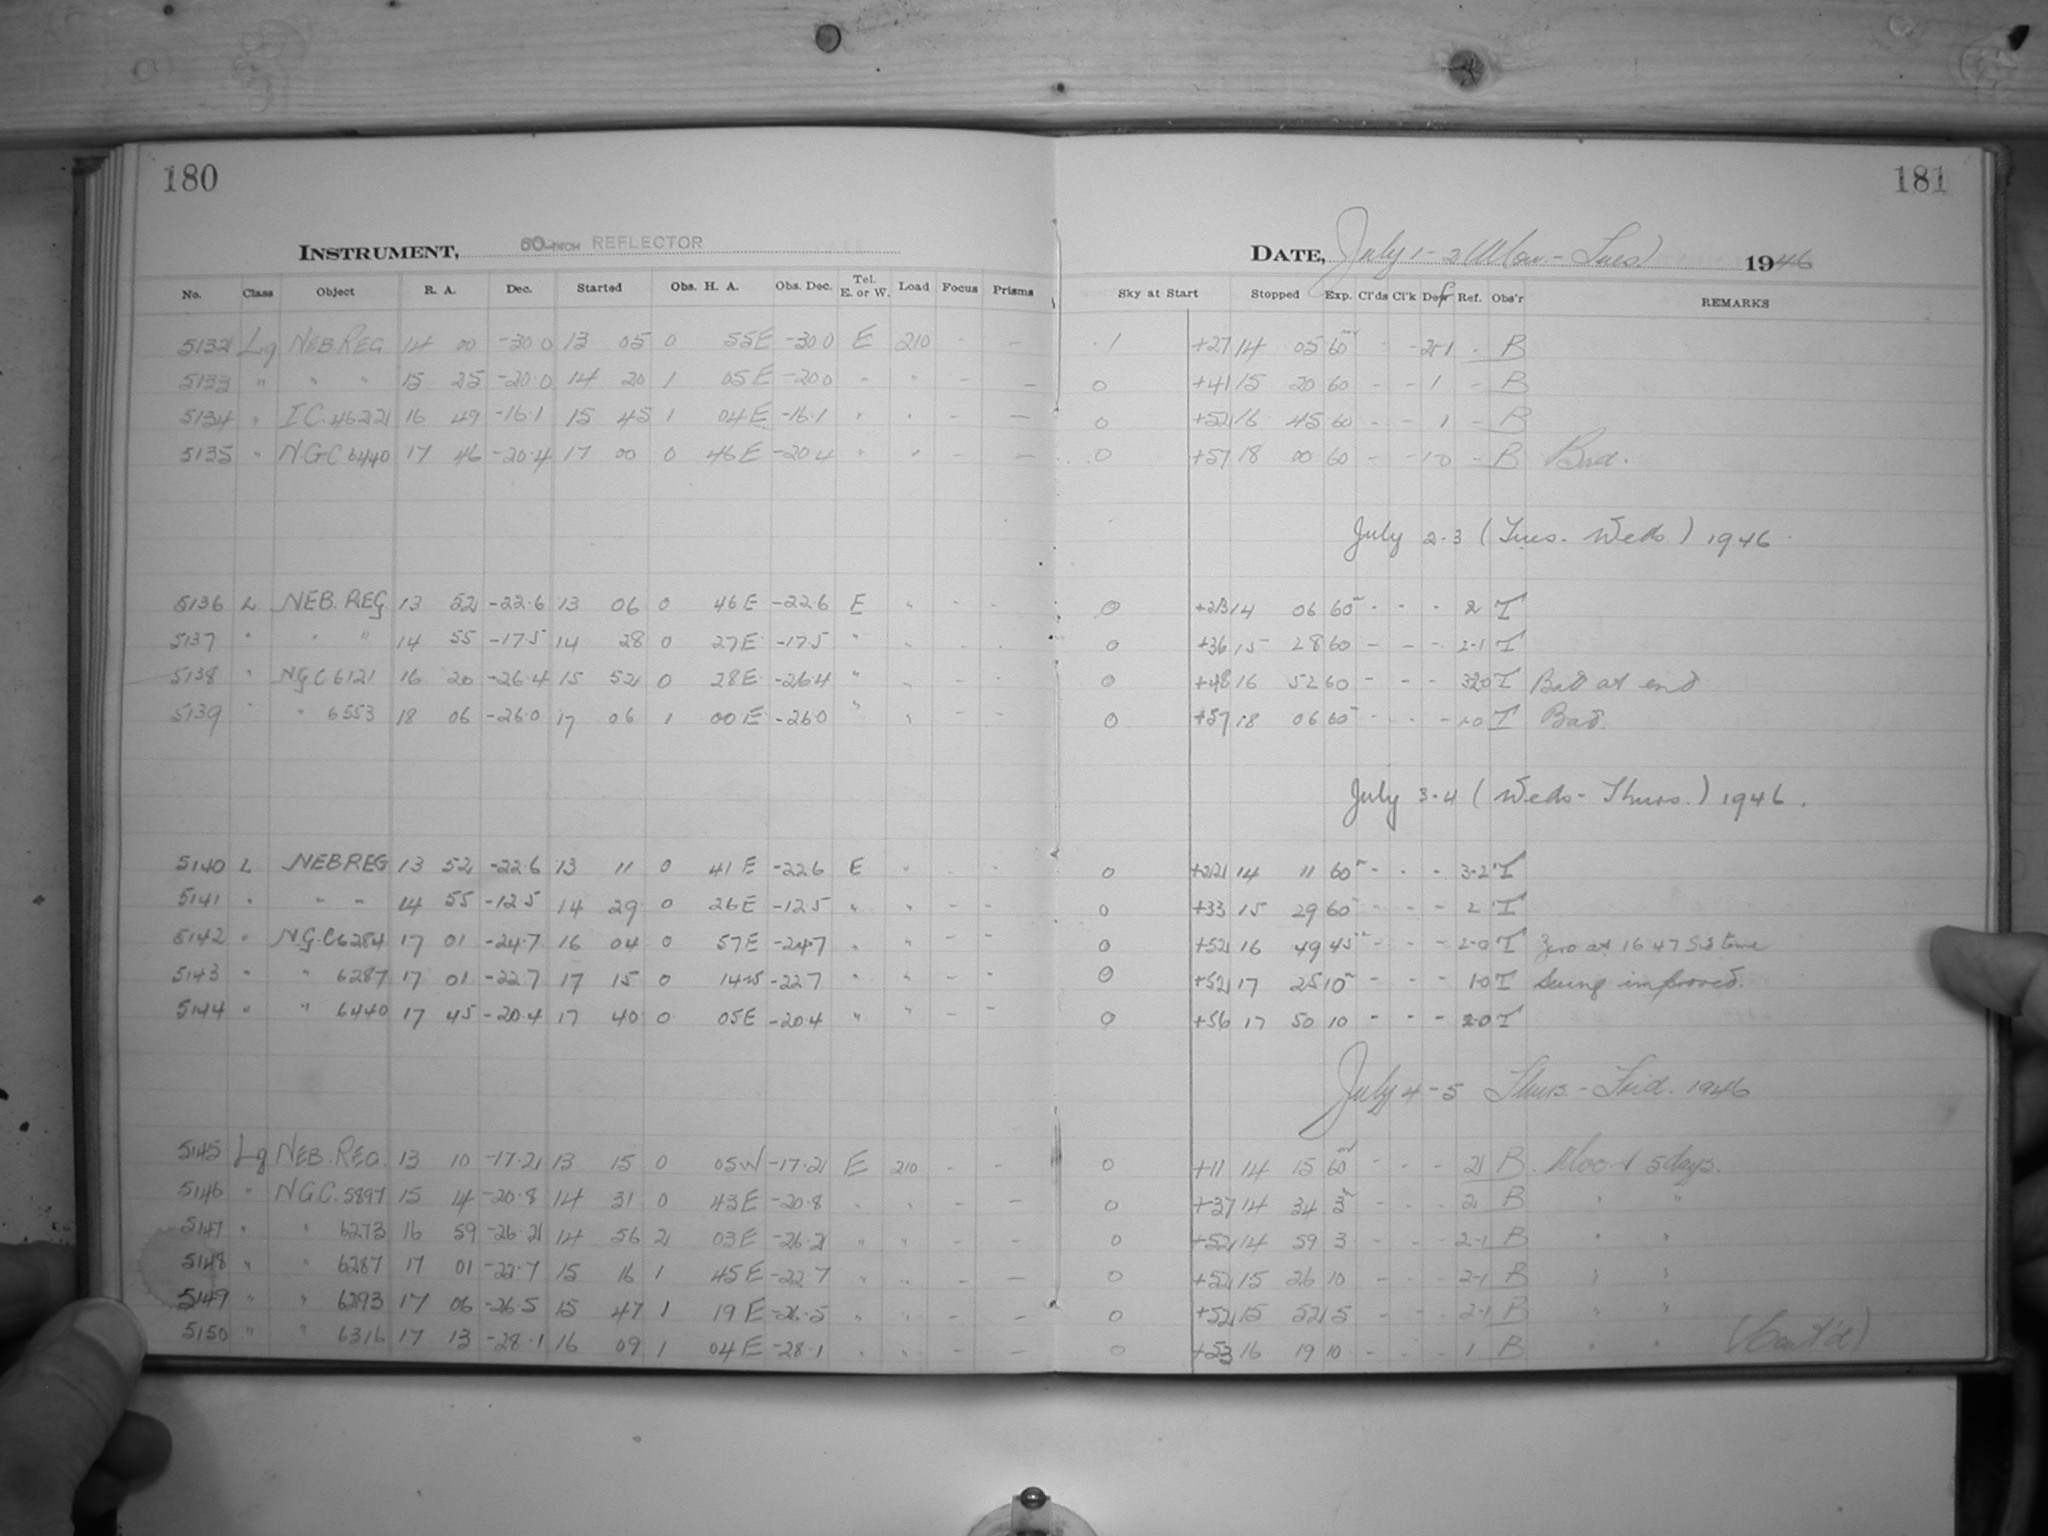 180
181
INSTRUMENT, 60-INCH REFLECTOR
DATE, July 1-2 (Mon.- Tues) 1946
No. Class Object R. A. Dec. Started Obs. H. A. Obs. Dec. Tel. E. or W. Load Focus Prisms Sky at Start Stopped Exp. Cl'ds Cl'k Dew Ref. Obs'r REMARKS
5132 Lg NEB.REG 14 00 -30 0 13 05 0 55E -30 0 E 210 - - 1 +27 14 05 60 - - 2-1 - B
5133 " " " 15 25 -20.0 14 20 1 05E -20.0 " " - - 0 +41 15 20 60 - - 1 - B
5134 " I.C. 4622 16 49 -16.1 15 45 1 04E -16.1 " " - - 0 +52 16 45 60 - - 1 - B
5135 " NGC 6440 17 46 -20.4 17 00 0 46E -20.4 " " - - 0 +57 18 00 60 - - 1-0 - B Bad.
July 2-3 (Tues.- Weds.) 1946
5136 L NEB. REG 13 52 -22.6 13 06 0 46E -22.6 E " - - 0 +23 14 06 60 - - - 2 T
5137 " " " 14 55 -17.5 14 28 0 27E -17.5 " " - - 0 +36 15 28 60 - - - 2-1 T
5138 " NGC 6121 16 20 -26.4 15 52 0 28E -26.4 " " - - 0 +48 16 52 60 - - - T Bad at end
5139 " " 6553 18 06 -26.0 17 06 1 00E -26.0 " " - - 0 +57 18 06 60 - - - 1-0 T Bad.
July 3-4 (Weds- Thurs.) 1946.
5140 L NEB REG 13 52 -22.6 13 11 0 41E -22.6 E " - - 0 +22 14 11 60 - - - 3-2 T
5141 " " " 14 55 -12.5 14 29 0 26E -12.5 " " - - 0 +33 15 29 60 - - - 2 T
5142 " N.G.C 6284 17 01 -24.7 16 04 0 57E -24.7 " " - - 0 +52 16 49 45 - - - 2-0 T Zero at 16 47 Sid time
5143 " " 6287 17 01 -22.7 17 15 0 14W -22.7 " " - - 0 +52 17 25 10 - - - 1-0 T Seeing improved.
5144 " " 6440 17 45 -20.4 17 40 0 05E -20.4 " " - - 0 +56 17 50 10 - - - 2-0 T
July 4-5 Thurs.- Frid. 1946
5145 Lg NEB. REG. 13 10 -17.2 13 15 0 05W -17.2 E 210 - - 0 +11 14 15 60 - - - 2 B Moon 5 days.
5146 " N.G.C. 5897 15 14 -20.8 14 31 0 43E -20.8 " " - - 0 +37 14 34 3 - - - 2 B " "
5147 " " 6273 16 59 -26.2 14 56 2 03E -26.2 " " - - 0 +52 14 59 3 - - - 2-1 B " "
5148 " " 6287 17 01 -22.7 15 16 1 45E -22.7 " " - - 0 +52 15 26 10 - - - 2-1 B " "
5149 " " 6293 17 06 -26.5 15 47 1 19E -26.5 " " - - 0 +52 15 52 5 - - - 2-1 B " "
5150 " " 6316 17 13 -28.1 16 09 1 04E -28.1 " " - - 0 +53 16 19 10 - - - 1 B " " (Cont'd)